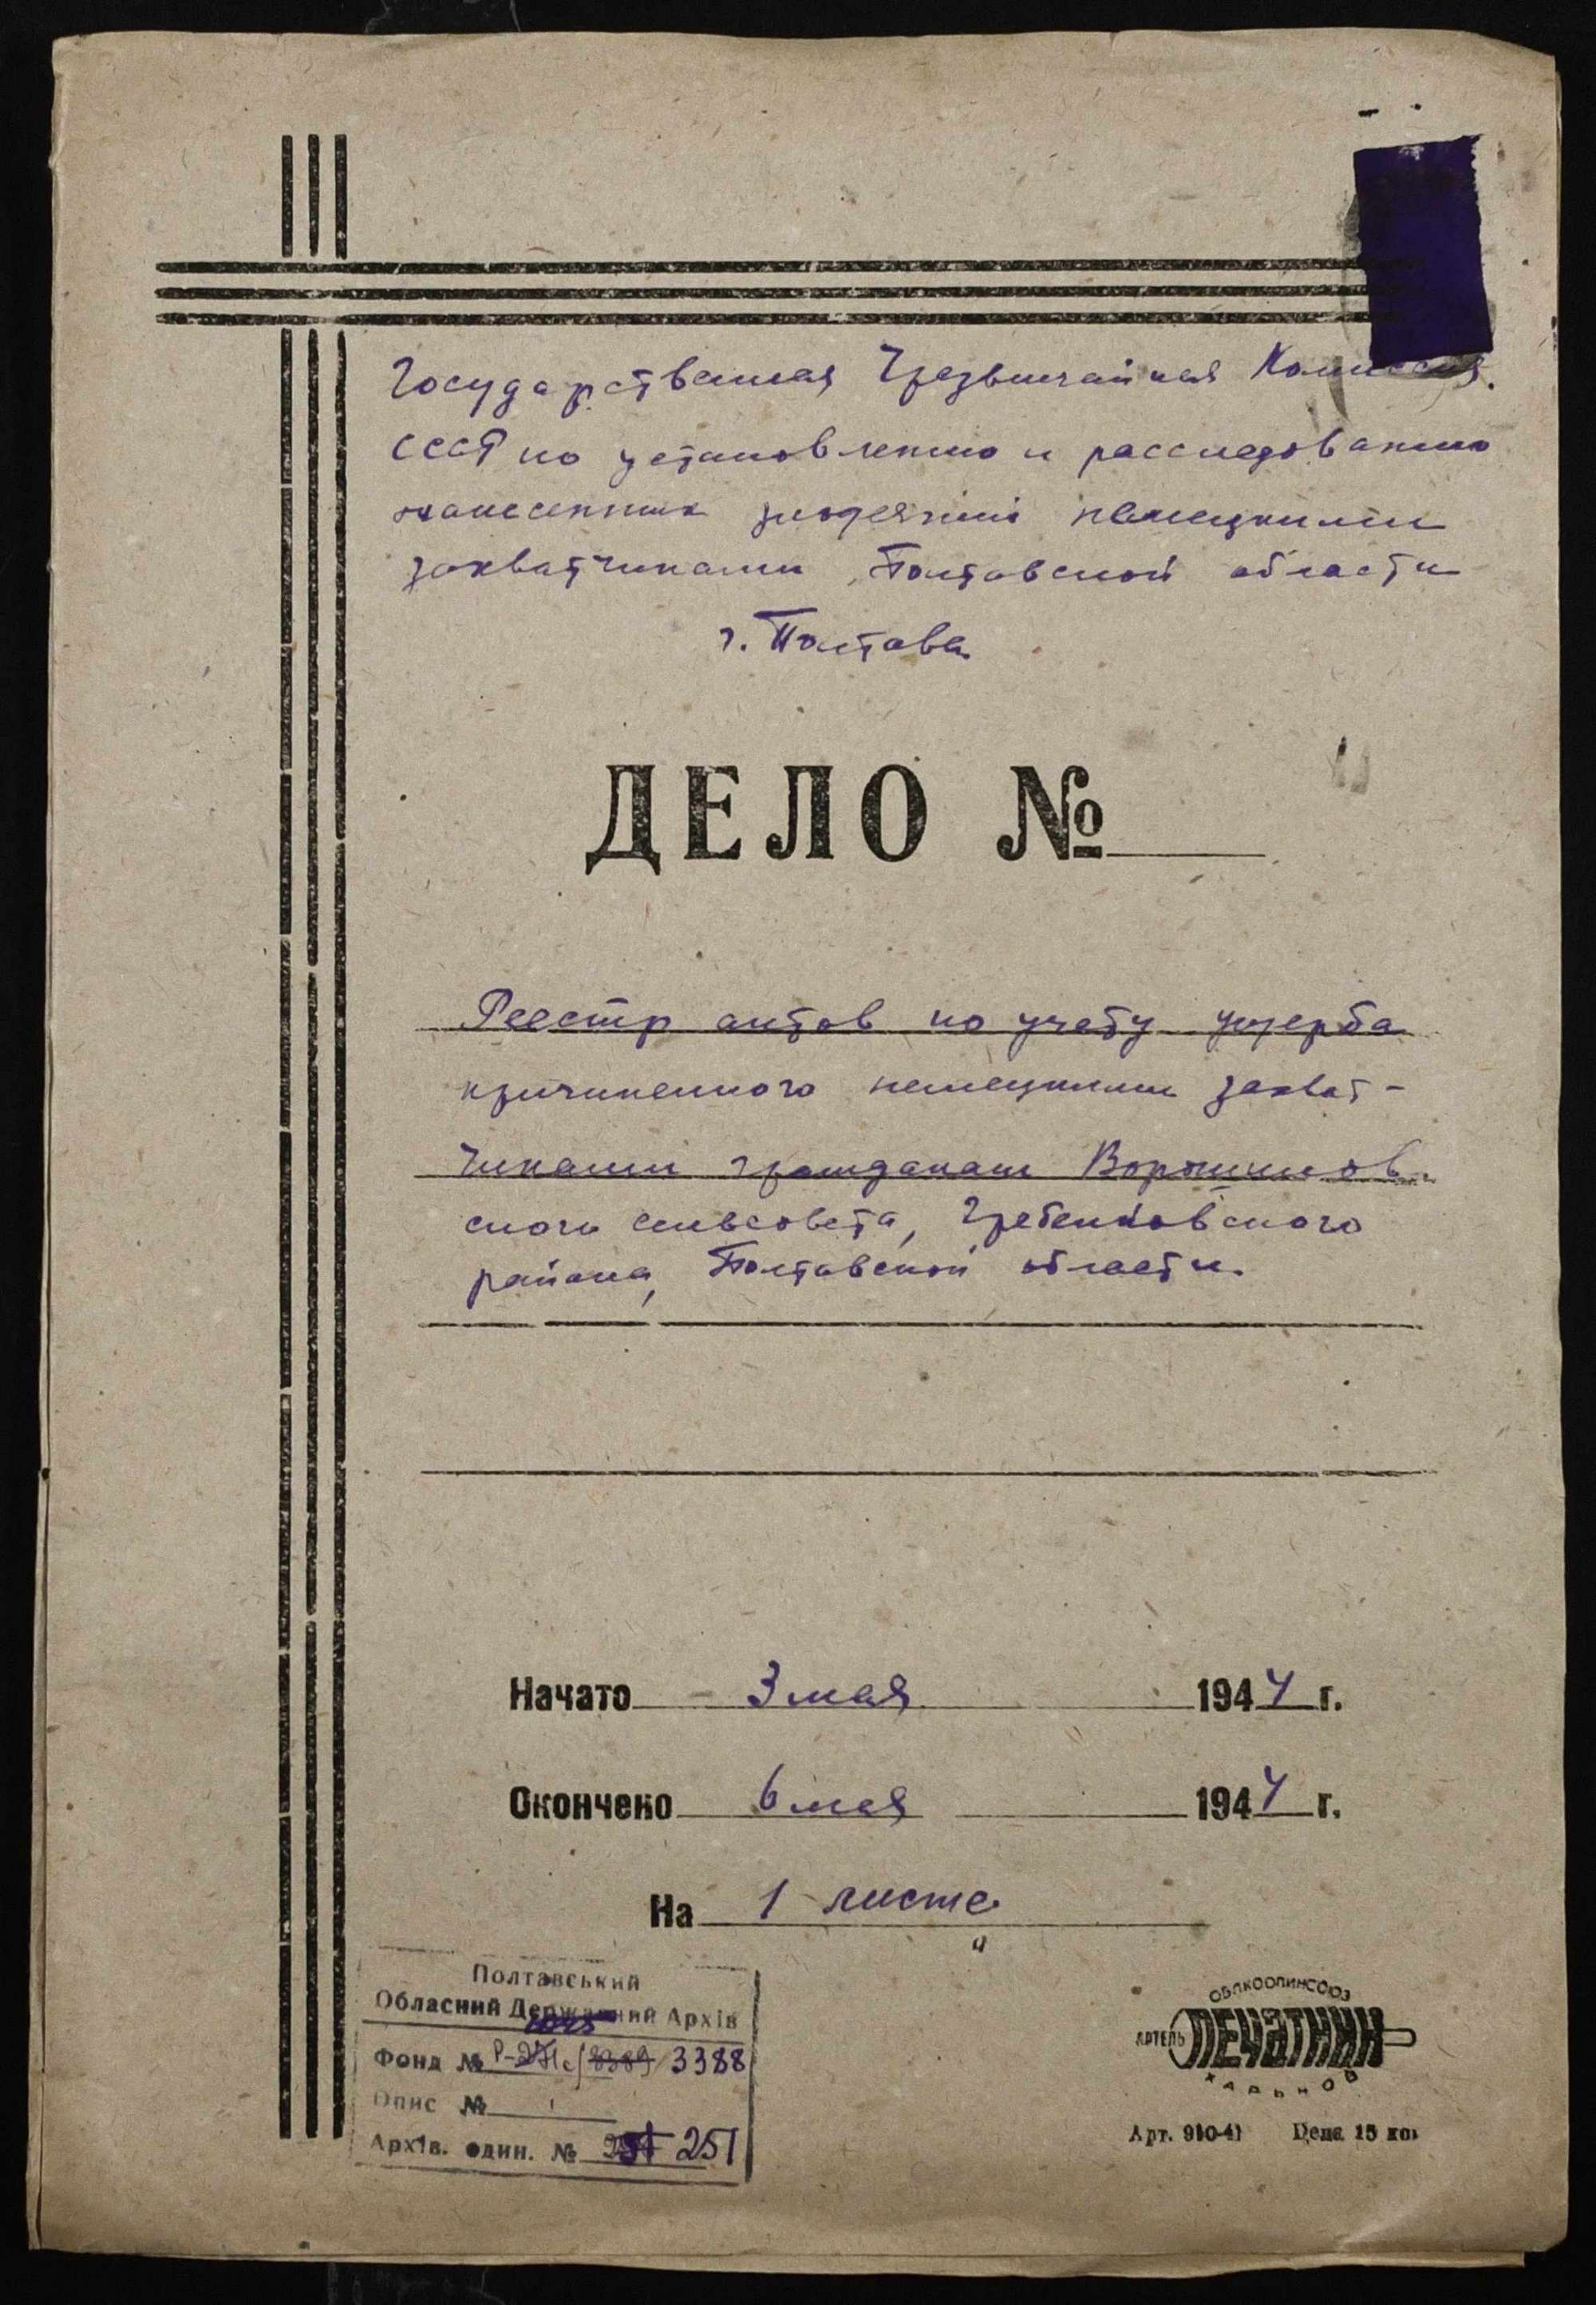 Государственная Чрезвычайная Комиссия
СССР по установлению и расследованию
нанесенных злодеяний немецкими
захватчиками Полтавской области
г. Полтава
ДЕЛО №
Реестр актов по учету ущерба
причиненного немецкими захват-
чиками гражданам Ворошилов
ского сельсовета, Гребенковского
района, Полтавской области.
Начато 3 мая 1944 г.
Окончено 6 мая 1944 г.
На 1 листе
Полтавський
Обласний Державний Архів
Фонд № Р- 3388
Опис № 1
Архів. один. № 251
ОБЛКООПИНСОЮЗ
АРТЕЛЬ ПЕЧАТНИК
ХАРЬКОВ
Арт. 910-41 Цена 15 коп